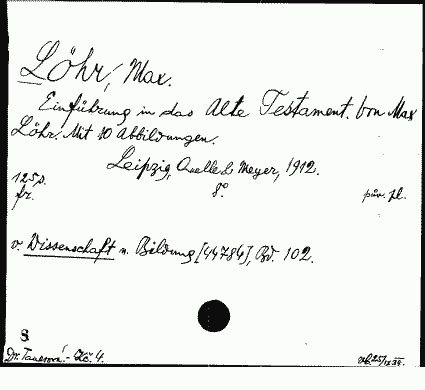 Löhr, Max.
Einführung in das Alte Testament. Von Max
Löhr. Mit 10 Abbildungen.
Leipzig, Quelle & Meyer, 1912.
125 s. 8°
fr. pův. pl.
v Wissenschaft u. Bildung [44784], Bd. 102.
S
Dr. Tauerová. - Kč. 4.